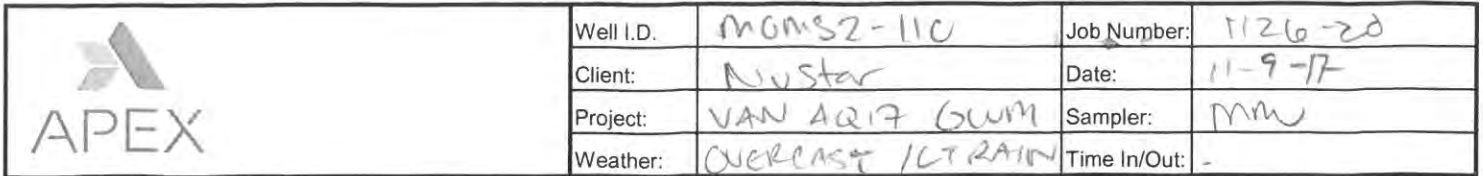 Well I.D. MGMS2-110 Job Number: 1126-20
Client: NuStar Date: 11-9-17
APEX
Project: VAN 4Q17 GWM Sampler: MMW
Weather: OVERCAST / LT RAIN Time In/Out: -